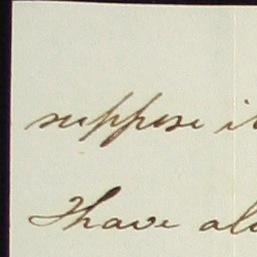 suppose it
I have al